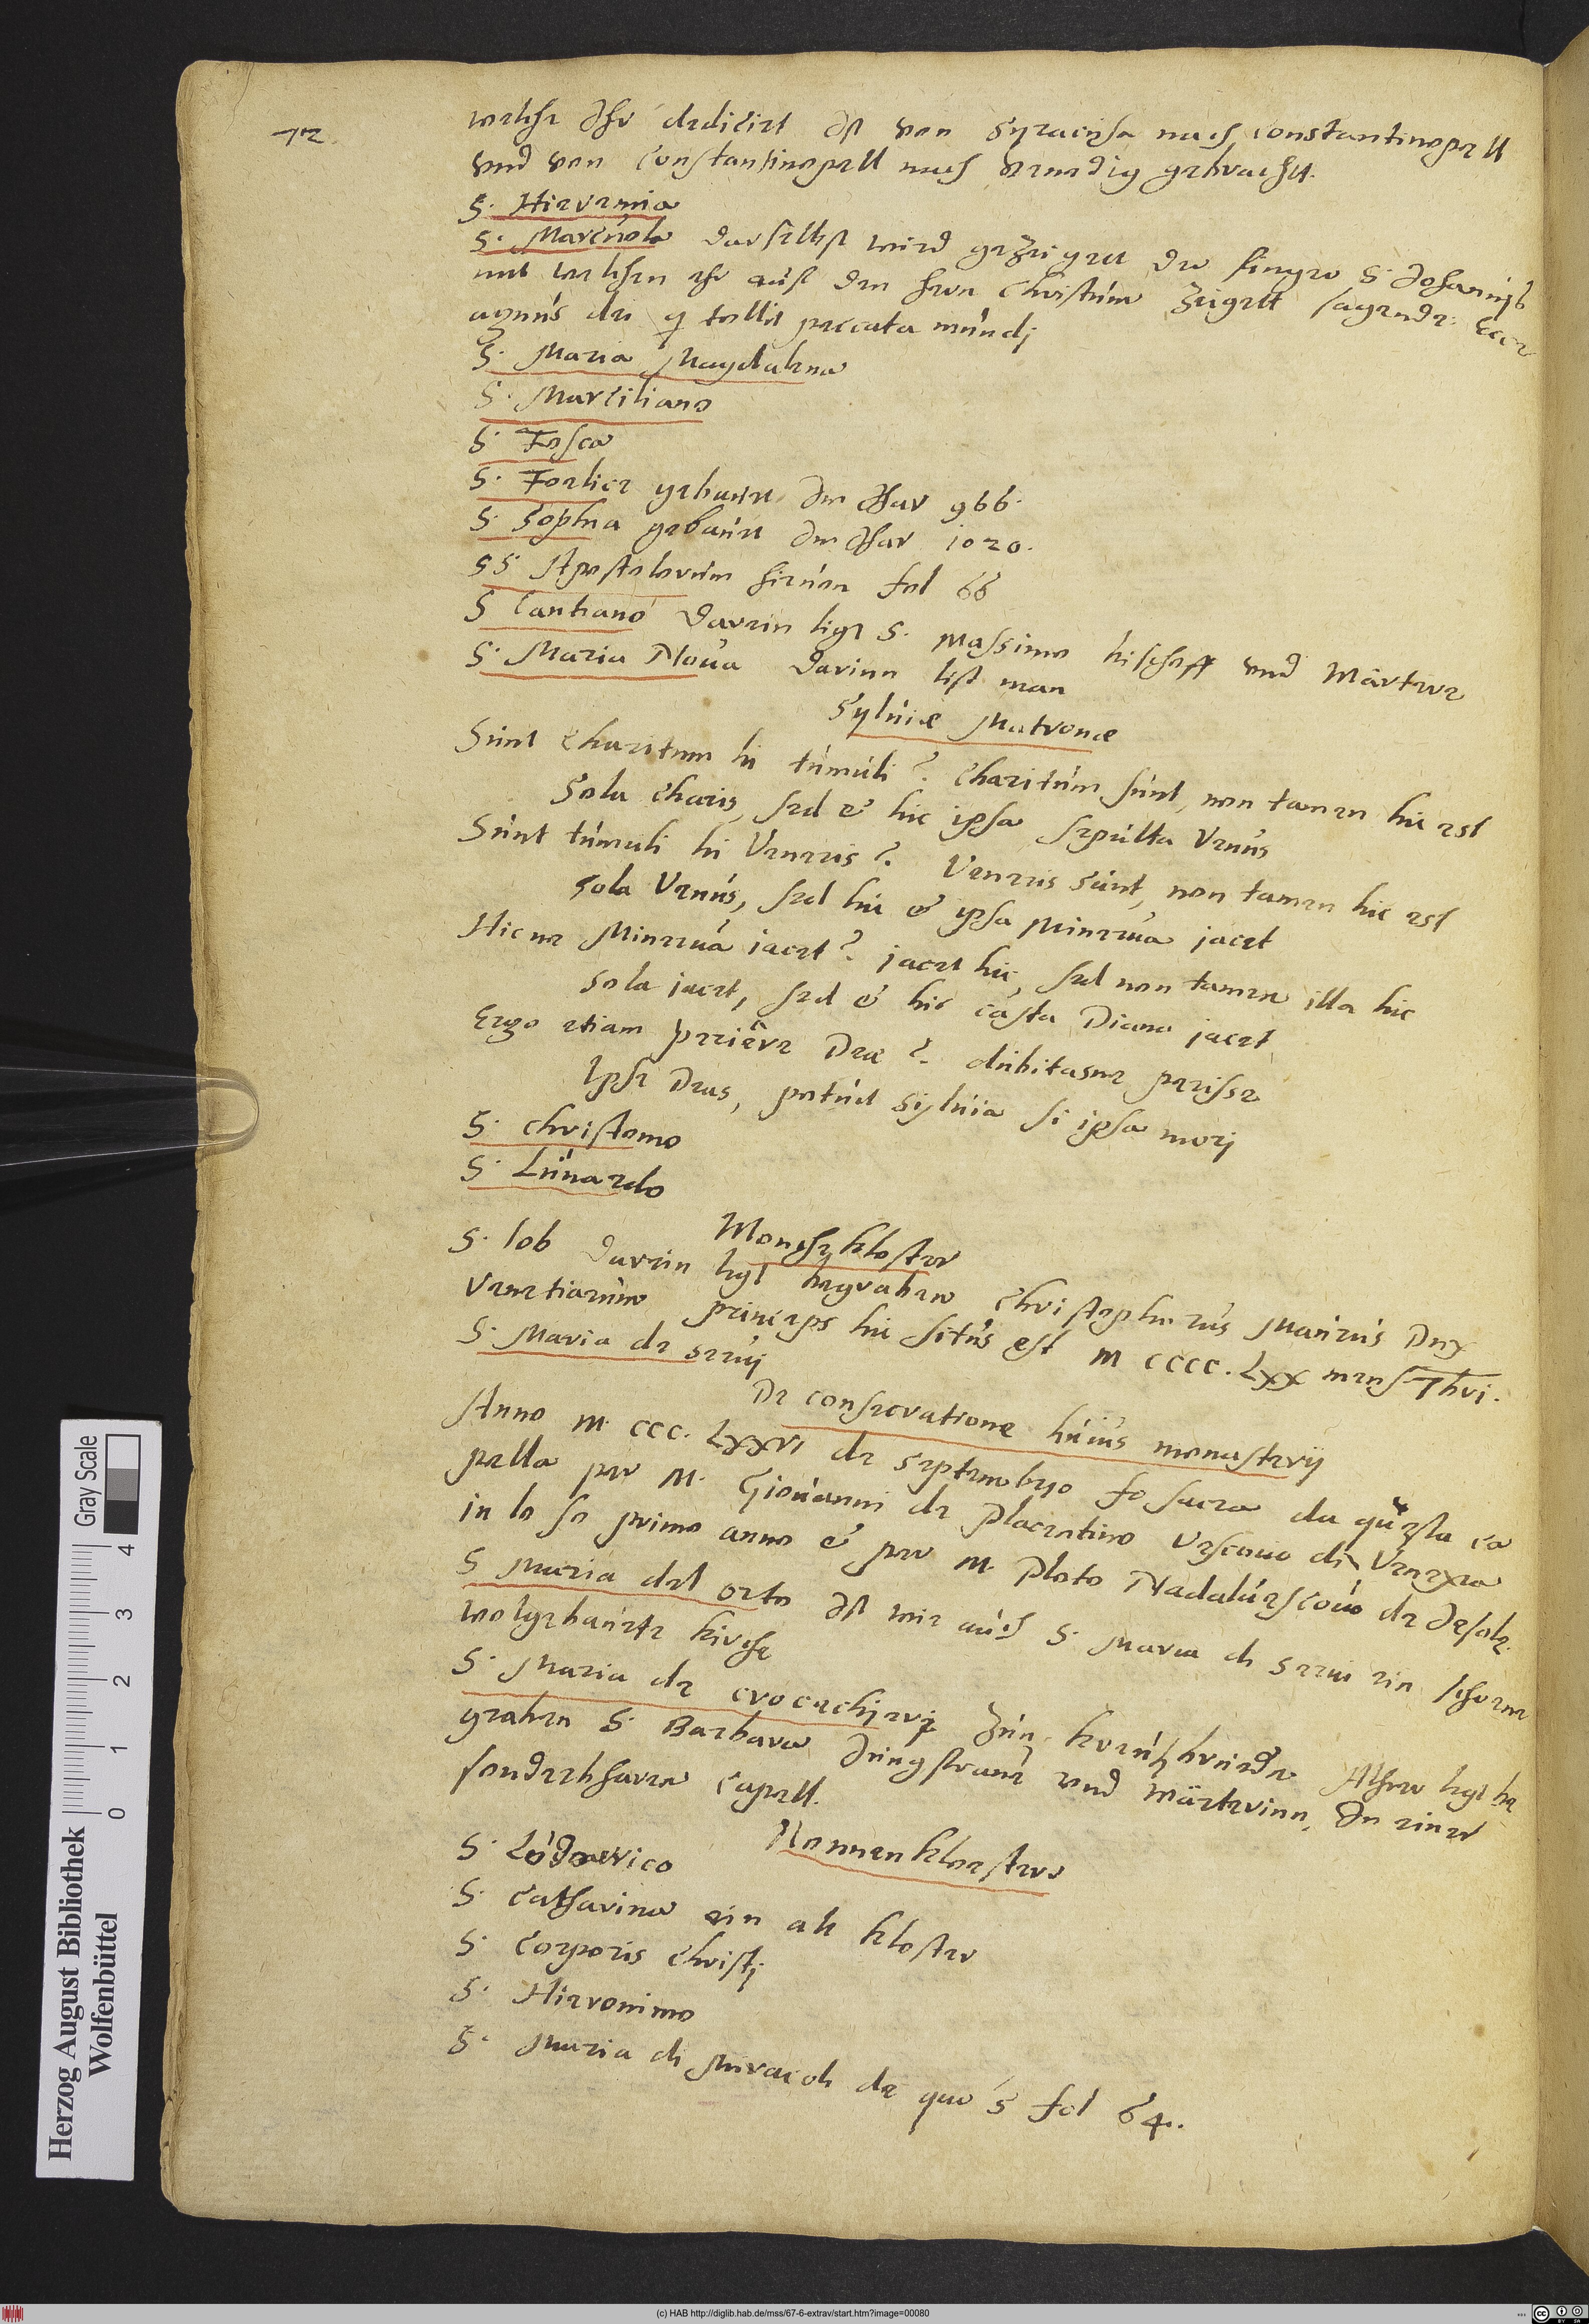 72.
welche Ihr dedicirt Ist von Syracusa nach constantinopell
vnd von Constantinopell nach Venedig gebracht.
S. Hieremia
S. Marcuola darselbst wird gezeiget der finger S. Johannis
mit welchen ehr auff den hern Christum zeigett sagende: Ecce
agnus dei q tollit peccata mundj
S. Maria Magdalena
S. Marciliano
S. Fosca
S. Foelice gebauet Im Jhar 966.
S. Sophia gebauet Im Jhar 1020.
SS Apostolorum hieuon fol 66
S Cantiano darein ligt S. Massimo bischoff vnd Märtere
S. Maria Noua darinn list man
Syluiæ Matronæ
Sunt Charitum hi tumuli? Charitum sunt, non tamen hic est
Sola Charis, sed & hic ipsa sepulta Venus
Sunt tumuli hi Veneris? Veneris sunt, non tamen hic est
Sola Venus, sed hic & ipsa Minerua jacet
Hicne Minerua iacet? jacet hic, sed non tamen illa hic
Sola iacet, sed & hic casta Diana jacet
Ergo etiam periêre Deæ? dubitasne perisse
Ipse Deus, potuit Syluia si ipsa morj
S. Christomo
S. Lunardo
Monche kloster
S. Iob darein ligt begraben Christophorus Maurus Dux
Venetiarum princeps hic situs est M CCCC. LXX mens
S. Maria de Seruj
De consecratione huius monasterij
Anno M CCC. LXXVI de Septembrjo fo sacra da questa ca
pella per M. Giouanni de Placentino Vescouo di Venexia
in lo so primo anno & per M. Ploto Nadal Vescouo de Jesole.
S Maria del orto Ist wie auch S. Maria di Serui ein schone
wolgebauete kirche
S. Maria de crocechierj Zun kreutzbrueder Alhier ligt be
graben S. Barbara Jungfraue vnd Märterinn, In einer
sonderbharen Capell.
Nonnen kloester
S. Lodouico
S. Catharina ein alt kloster
S. Corporis Christj
S. Hieronimo
S. Maria di Miracoli de quo S fol 64.
Herzog August Bibliothek
Wolfenbüttel
Gray Scale
0 1 2 3 4
(c) HAB http://diglib.hab.de/mss/67-6-extrav/start.htm?image=00080